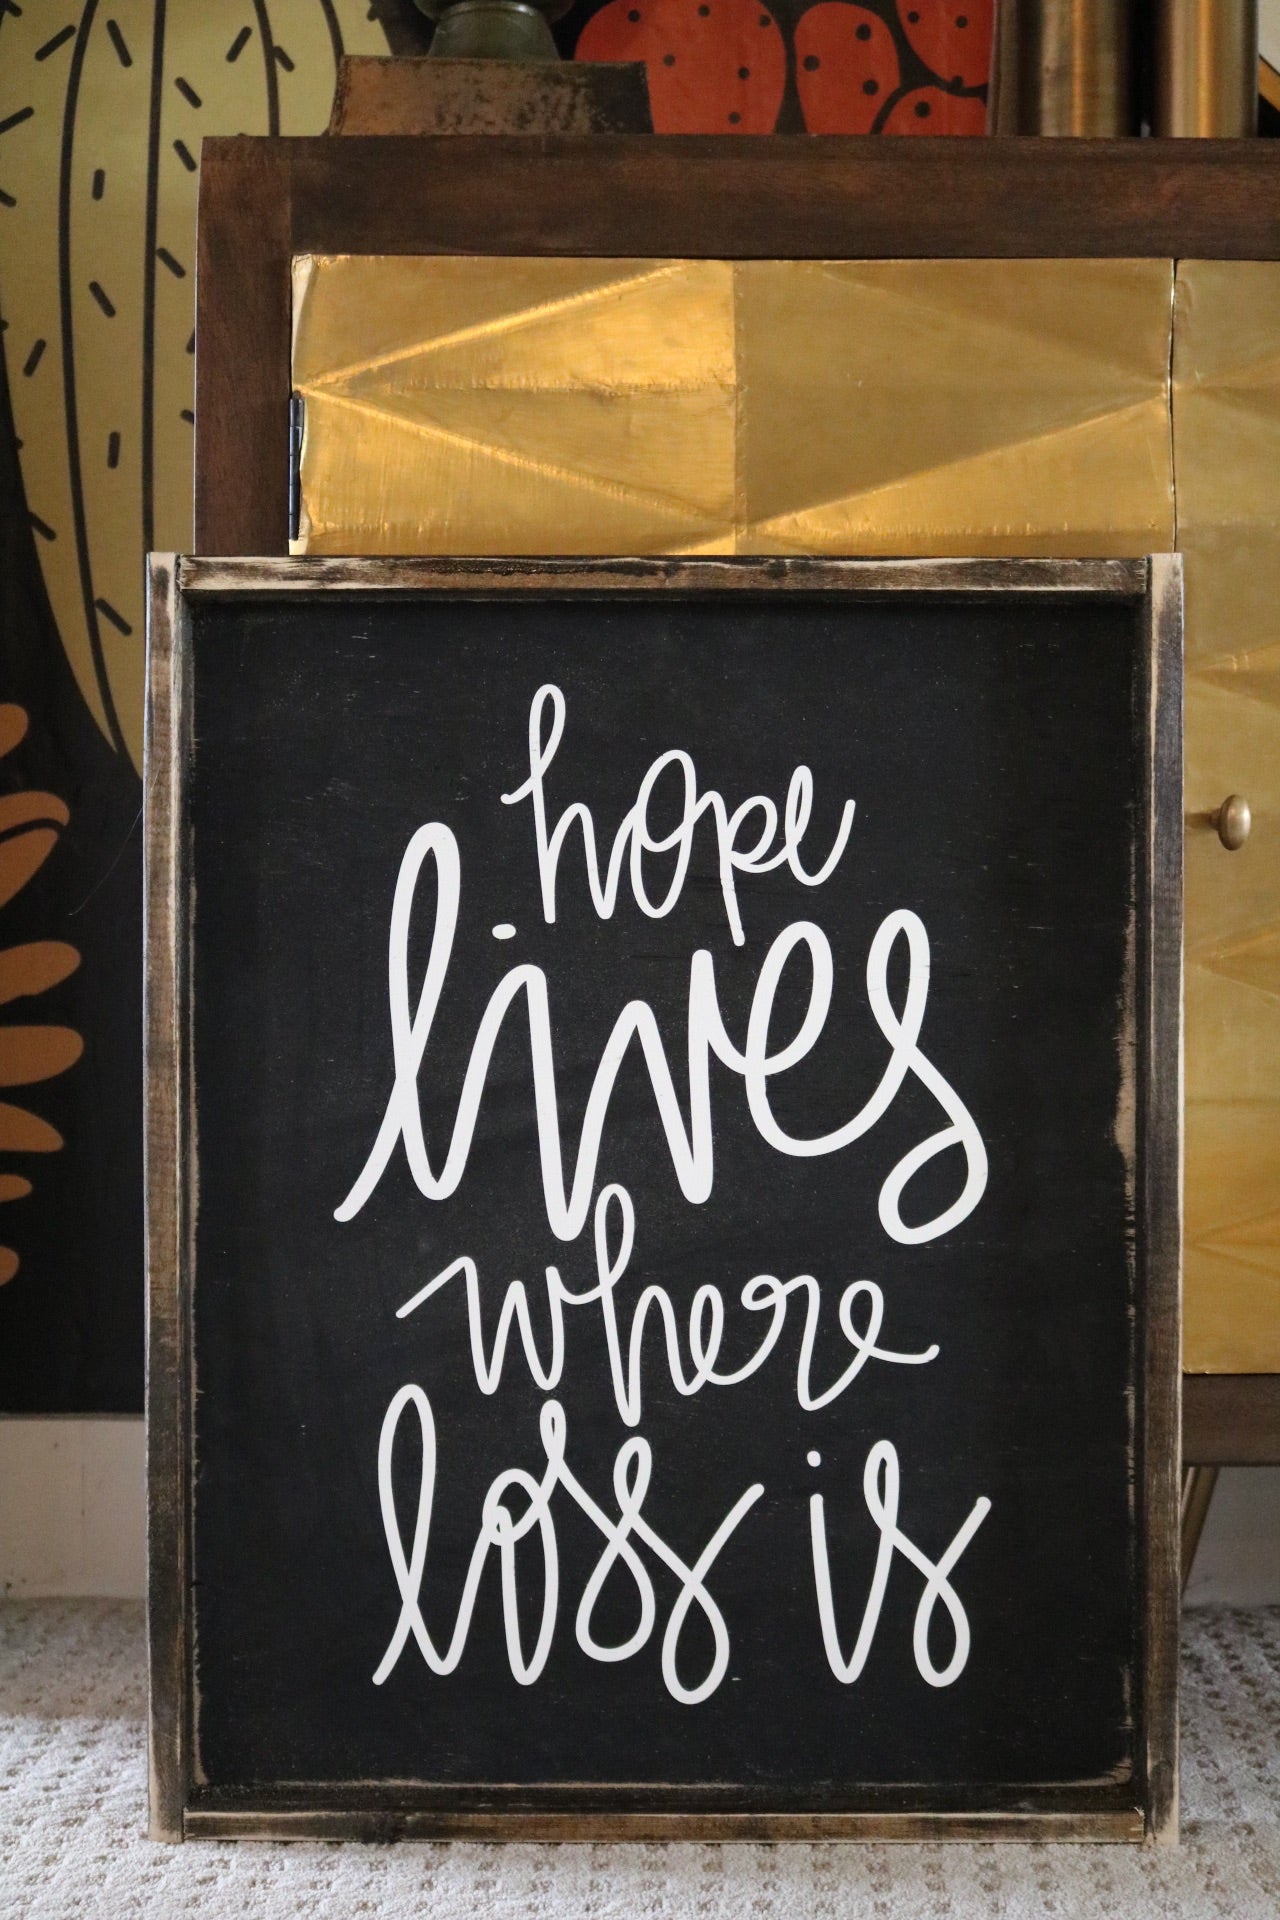 hope
lives
where
loss is